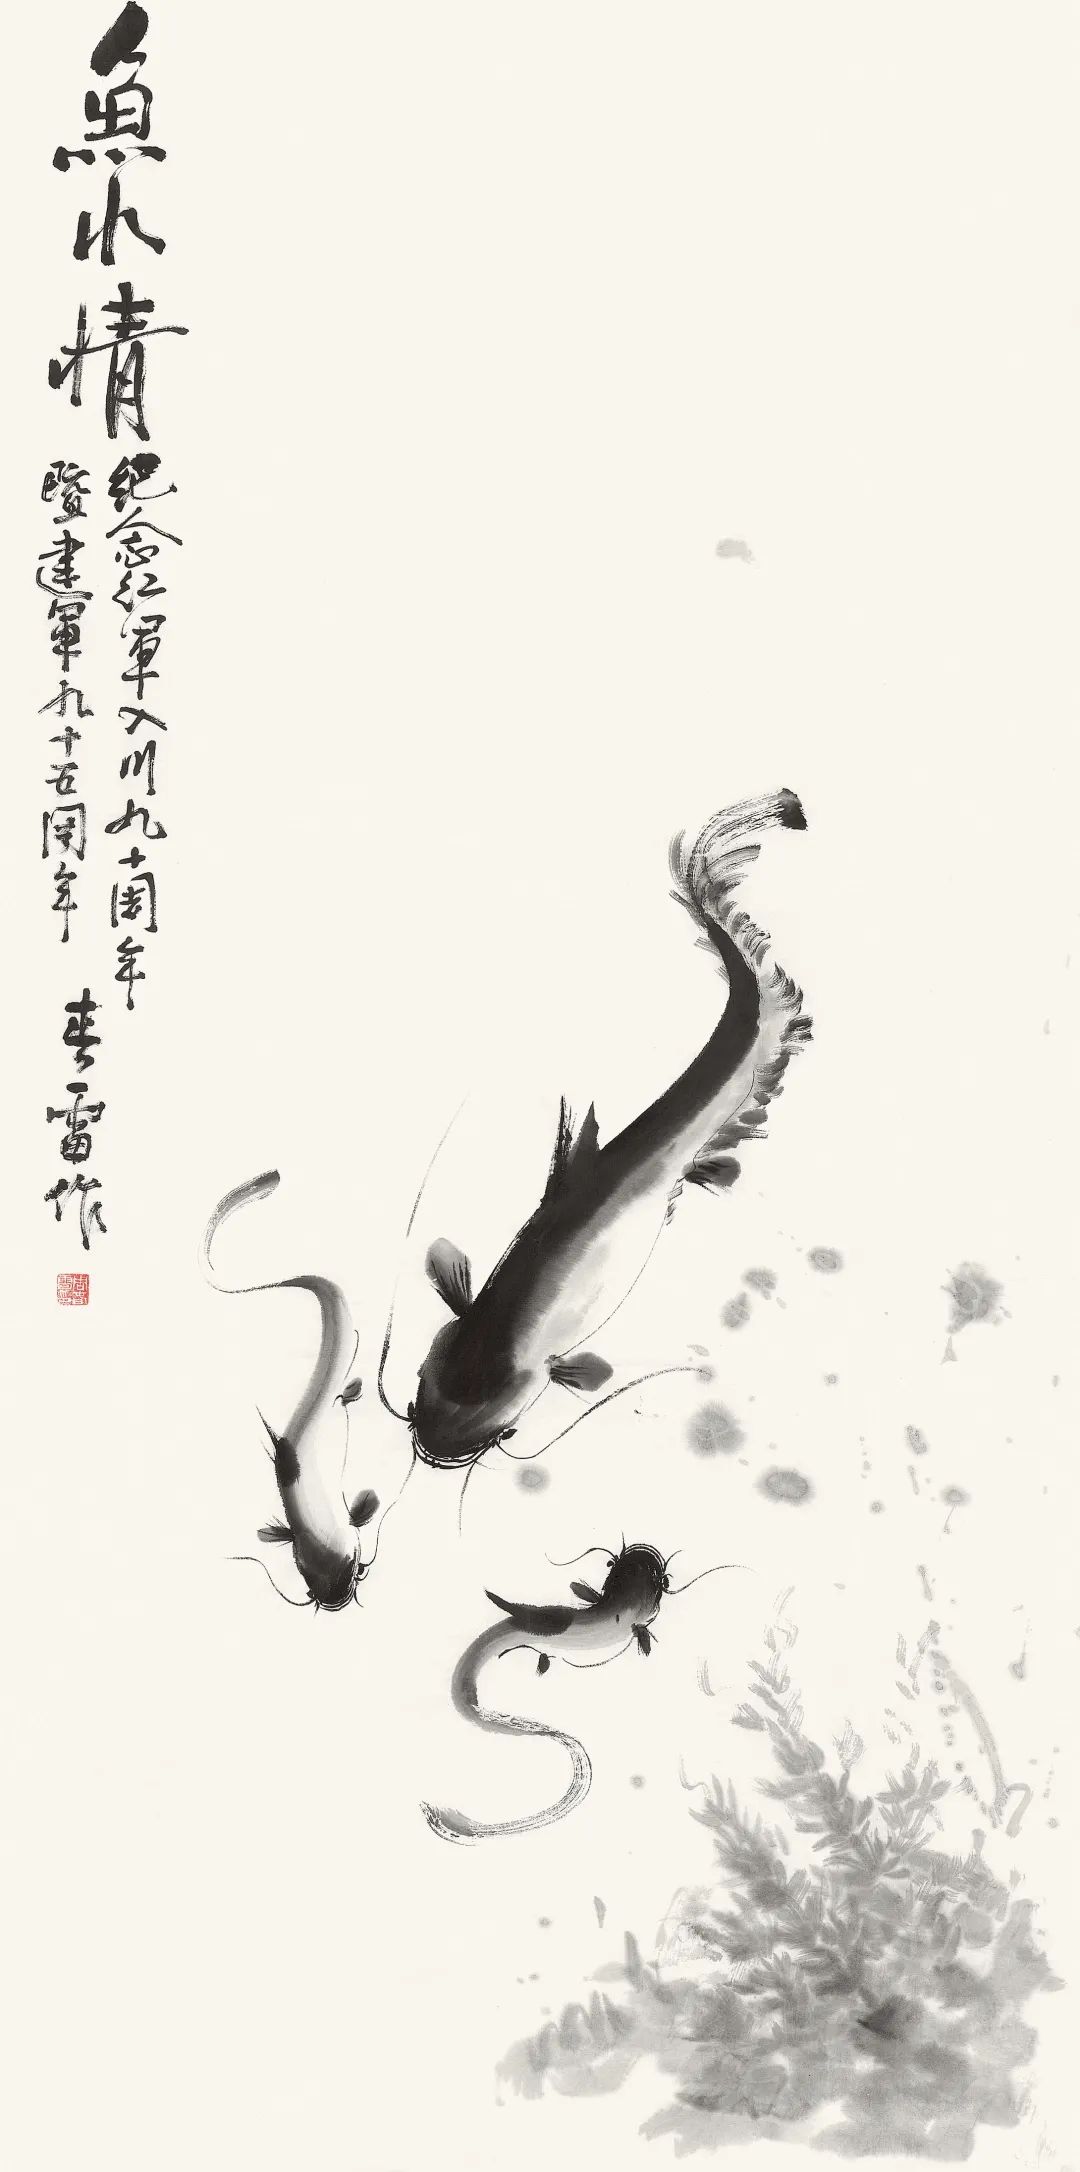 魚水情
纪念红軍入川九十周年
暨建軍九十五周年
春雷作